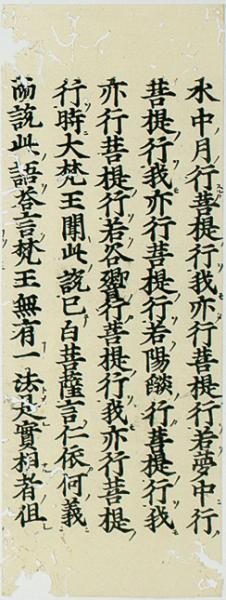 水中月行菩提行我亦行菩提行若夢中行
菩提行我亦行菩提行若陽燄行菩提行我
亦行菩提行若谷響行菩提行我亦行菩提
行時大梵王聞此說已白菩薩言仁依何義
而說此語答言梵王無有一法是實相者但